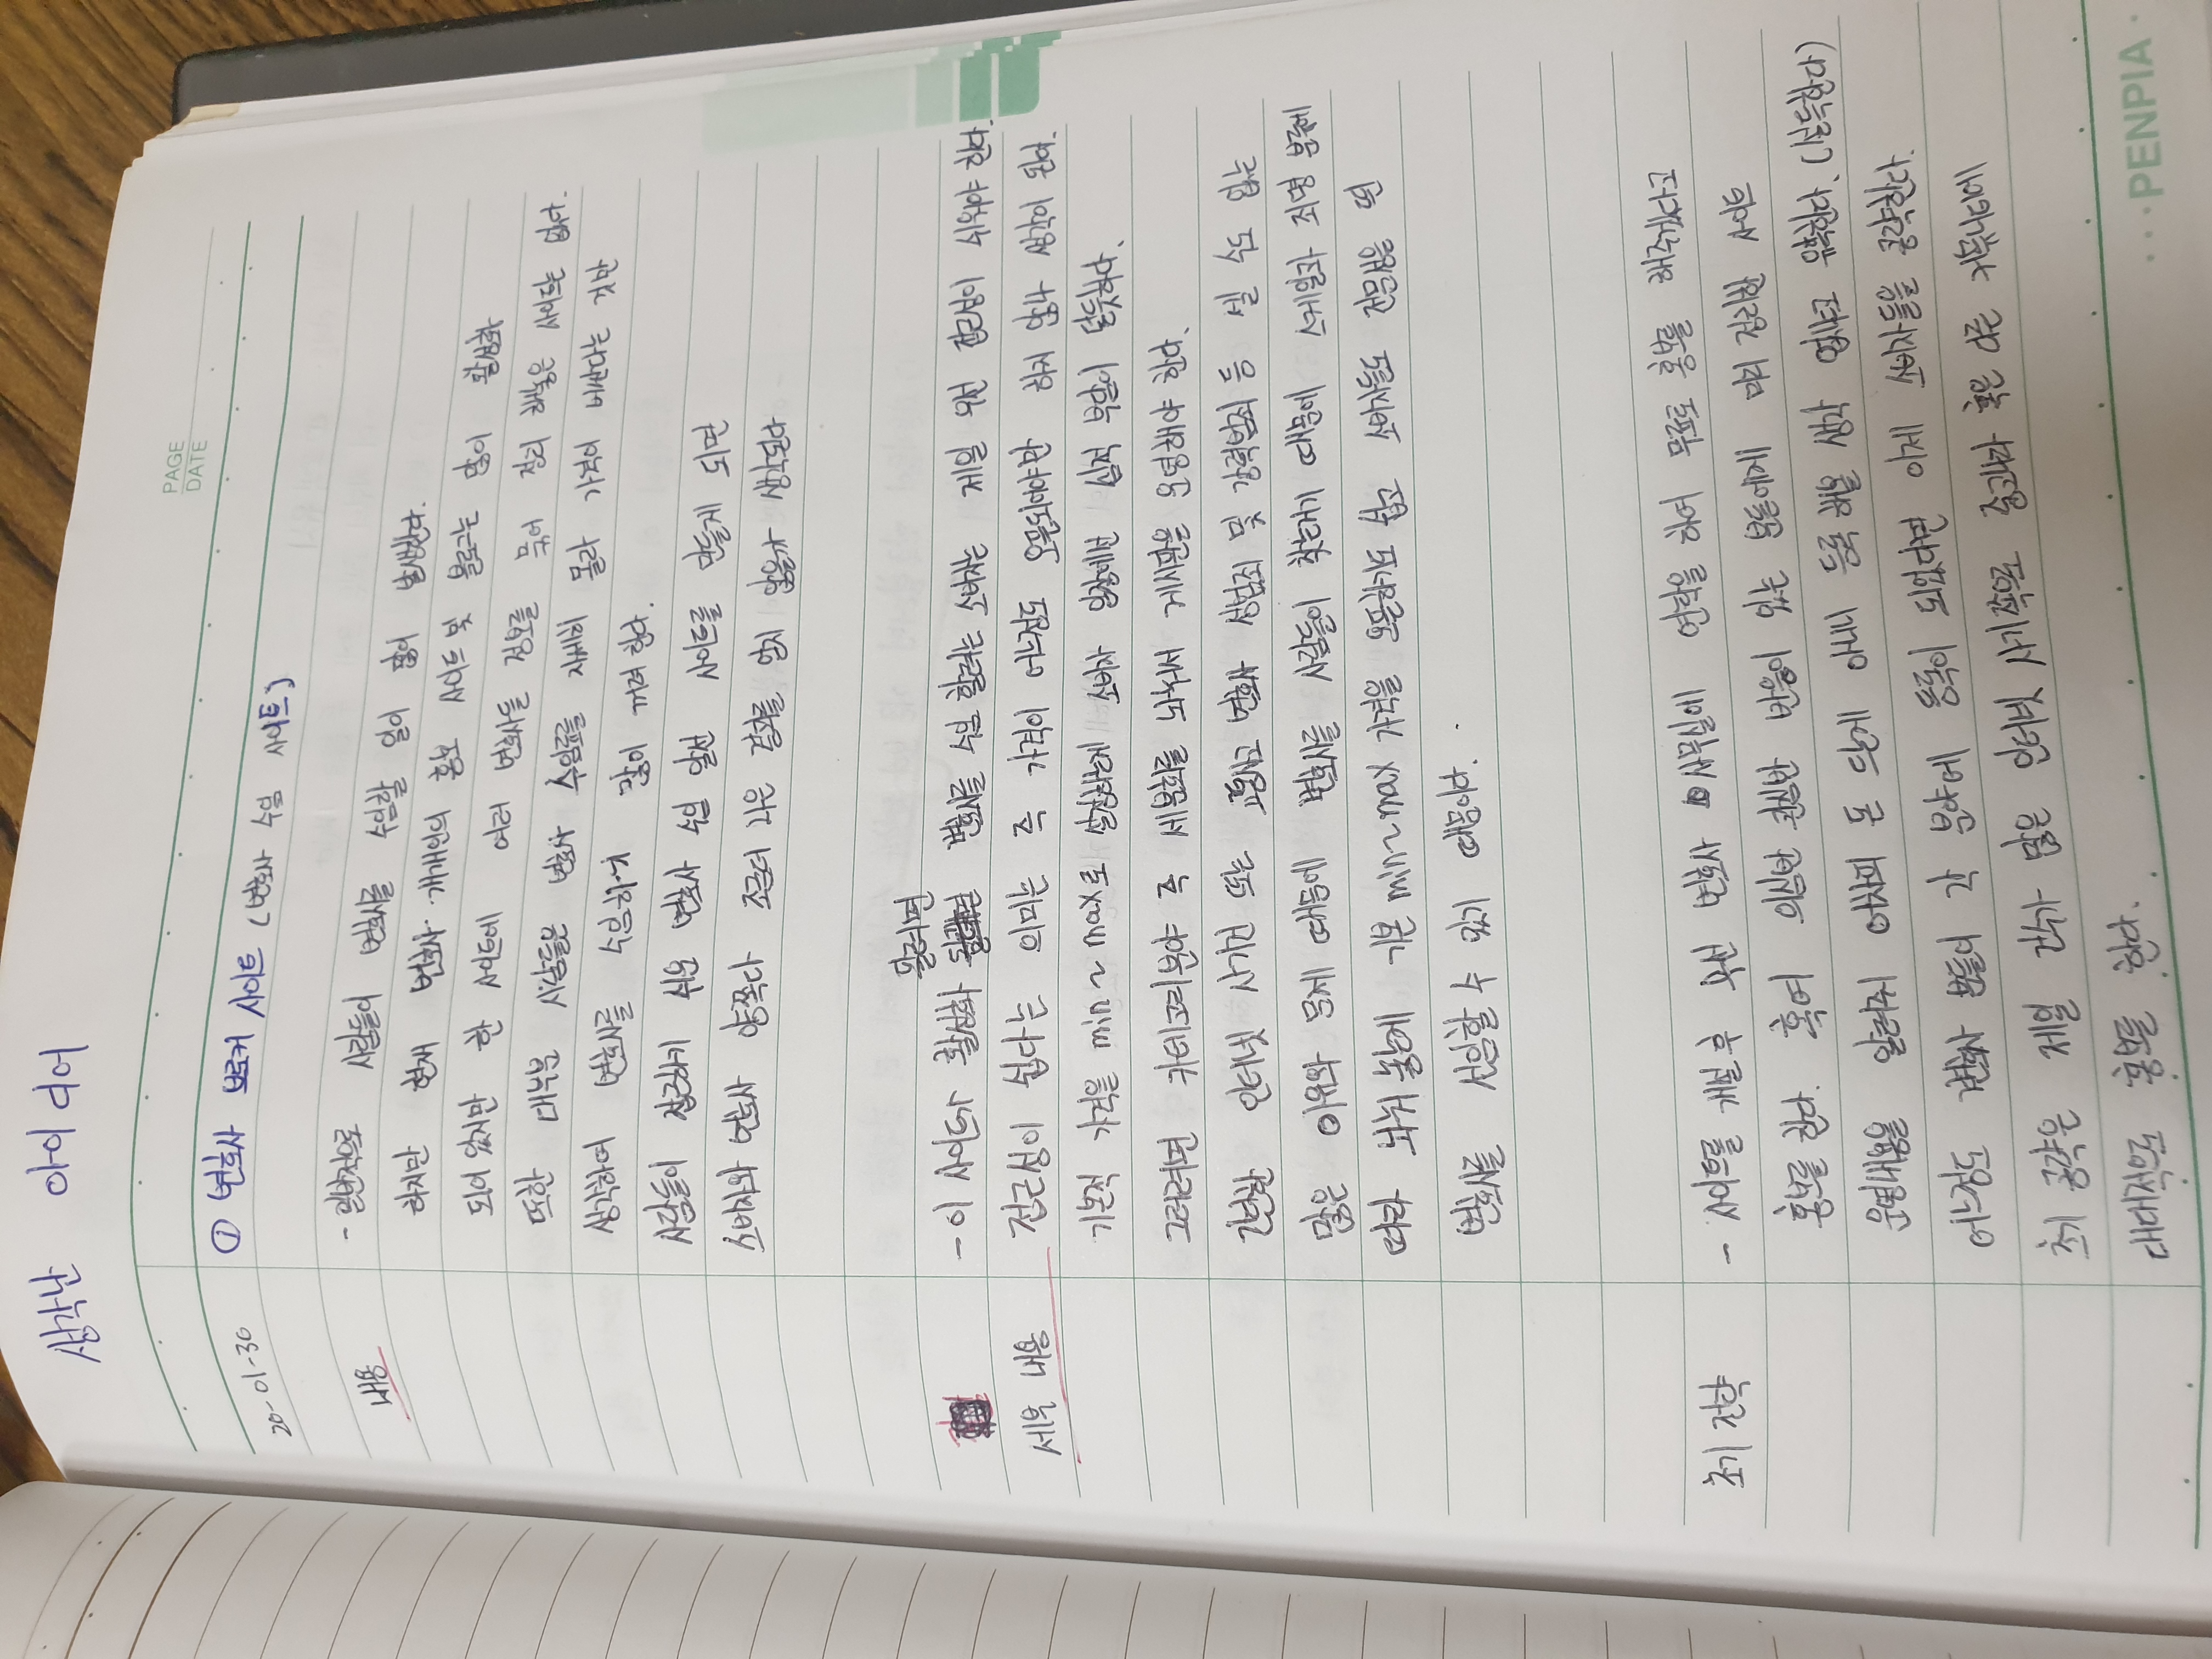 생각난 아이디어
PAGE
DATE
20-01-30 ① 변호사 브로커 사이트 (변호사 수임 사이트)
내용 - 일반적으로 사람들이 변호사를 수임할 일이 많이 발생한다.
하지만 현재 변호사 개개인의 홍보 사이트 및 블로그는 많이 활성화
되어 있지만 한 사이트에 여러 변호사들 정보를 묶어 정리 해놓은 사이트는 없다.
또한 대부분 사람들은 변호사 수임료를 자세히 몰라 가격이 비싸다는 것만
생각하여 변호사를 수임하기 많이 꺼려 한다.
사람들이 접근하기 쉬운 변호사 수임 알선 사이트를 만들게 되면
소비자와 변호사 양쪽다 조금더 나은 결과를 얻지 않을까 생각된다
될려면
- 이 사이트가 활성화 변호사를 수임 할려는 소비자는 제일 우선 접근성이 쉬워야 한다.
세부 내용 접근성이 쉽다는 의미는 즉 가격이 어느정도 오픈되어야만 하지 않나 생각이 된다.
기본적 가격을 min ~ max로 설정하는게 소비자 입장에선 심적 부담이 덜듯하다.
그러려면 카테고리분야 즉 세분화를 놔눠서 게시판을 운영해야 한다.
간단한 인터넷 사기건 또는 교통사고 변호사 성범죄 및 강력범죄 등 셀 수도 없는
많은 이유와 문제 때문에 변호사를 사람들이 찾는거기 때문에 스케일과 죄명 분류에
따라 놔눠 놓는게 기본 min~max 가격을 오픈하기도 쉽고 소비자들도 전문성을 띤
변호사를 선임할 수 있기 때문이다.
초기 전략 - 사이트를 개설 후 우선 변호사 사무실에 연락을 하여 무료로 홍보를 해주겠다고
홍보를 한다. 혹여 의심반 관심반 반응이 있는 분들에게 미리 정리한 사이트
운영내용을 알려줘 어차피 돈 드는게 아니니 등록 해볼 생각 없냐고 유혹한다. (설득한다)
어느정도 변호사 분들이 각 분야에 등록이 되었다면 이제 소비자들을 공략한다.
초기 공략은 제일 건수가 많은 인터넷 사기쪽으로 중고나라 혹은 다른 커뮤니티에
대대적으로 홍보를 한다.
PENPIA